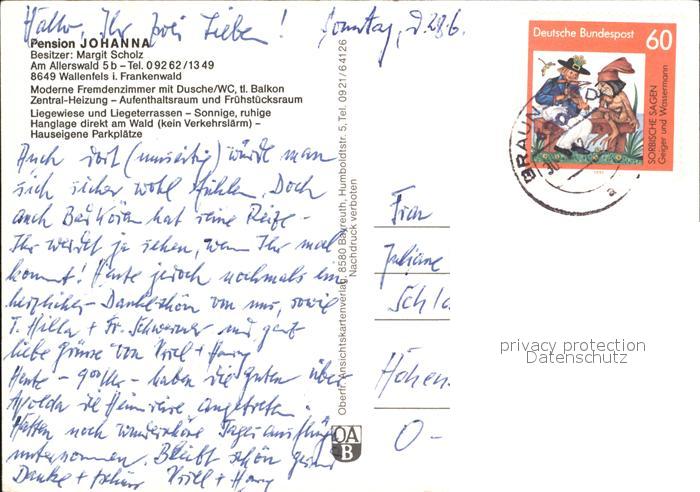 Hallo, Ihr zwei Lieben! Sonntag, d. 28.6.
Pension JOHANNA
Besitzer: Margit Scholz
Am Allerswald 5 b – Tel. 0 92 62 / 13 49
8649 Wallenfels i. Frankenwald
Moderne Fremdenzimmer mit Dusche/WC, tl. Balkon
Zentral-Heizung – Aufenthaltsraum und Frühstücksraum
Liegewiese und Liegeterrassen – Sonnige, ruhige
Hanglage direkt am Wald (kein Verkehrslärm) –
Hauseigene Parkplätze
Auch dort (umseitig) würde man
sich sicher wohl fühlen. Doch
auch hat seine Reize -
Ihr werdet ja sehen, wenn Ihr mal
kommt! Heute jedoch nochmals ein
herzliches Dankeschön von uns, sowie
T. Hilla + Fr. und ganz
liebe Grüsse von + Harry
Heute - - haben die guten über
Apolda die Heimreise angetreten.
Hatten noch wunderschöne Tagesausflüge
unternommen. Bleibt schön gesund
Danke + + Harry
Oberfr. Ansichtskartenverlag, 8580 Bayreuth, Humboldtstr. 5, Tel. 0921/64126
Nachdruck verboten
OA
B
Deutsche Bundespost 60
SORBISCHE SAGEN
Geiger und Wassermann
BRAUN
Frau
Juliane
Schl
Höhen
O-
privacy protection
Datenschutz